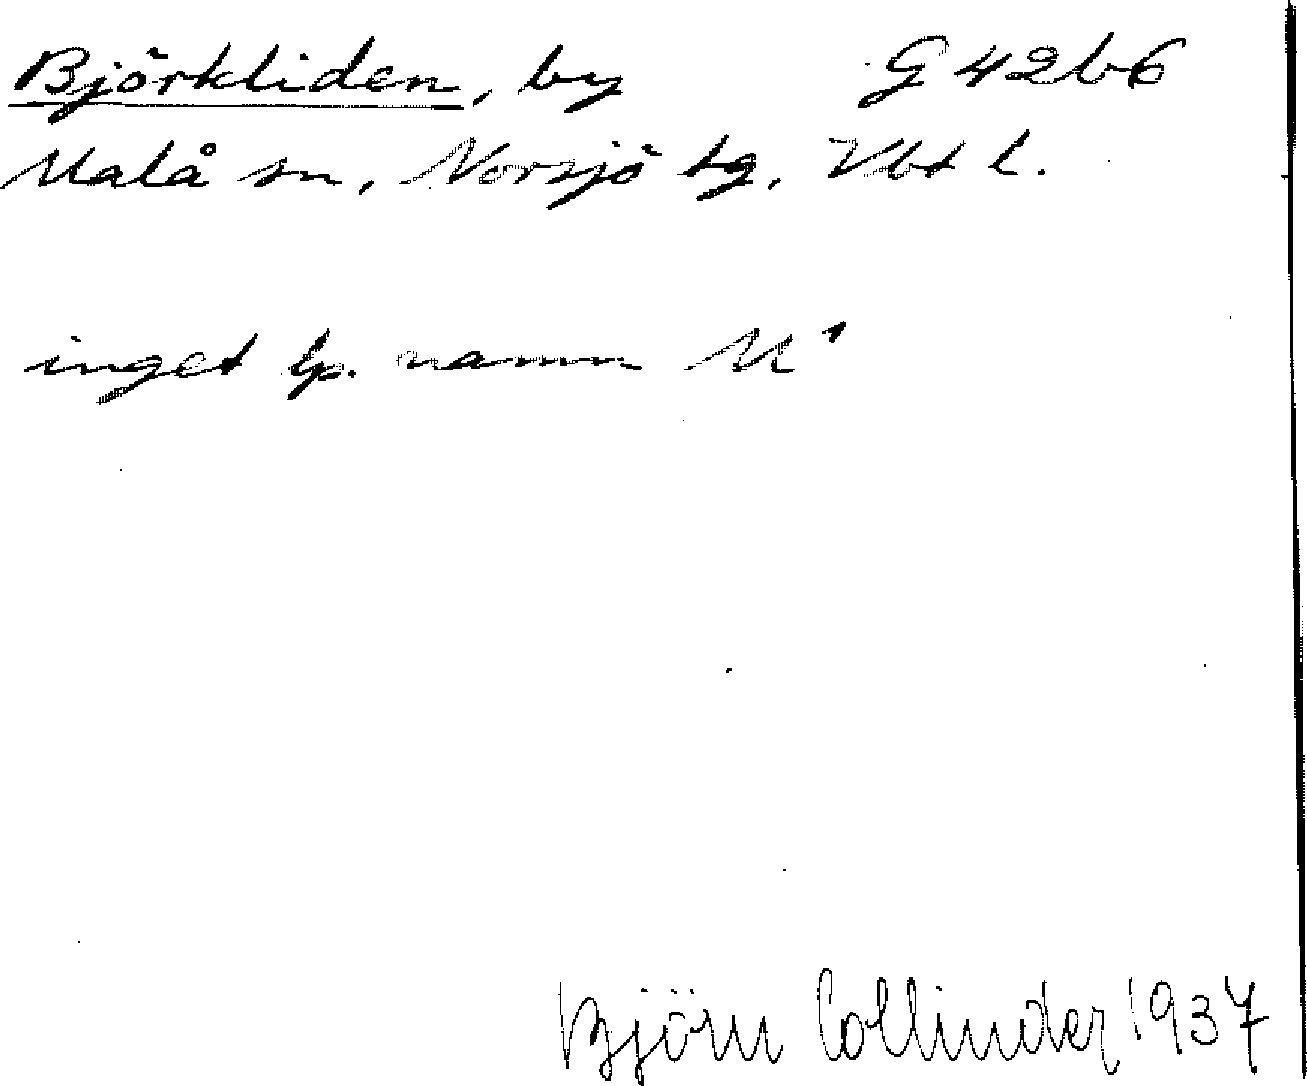 Björkliden, by G 42 b 6
Malå sn, Norsjö tg, Vbt l.
inget lp. namn M¹
Björn Collinder 1937